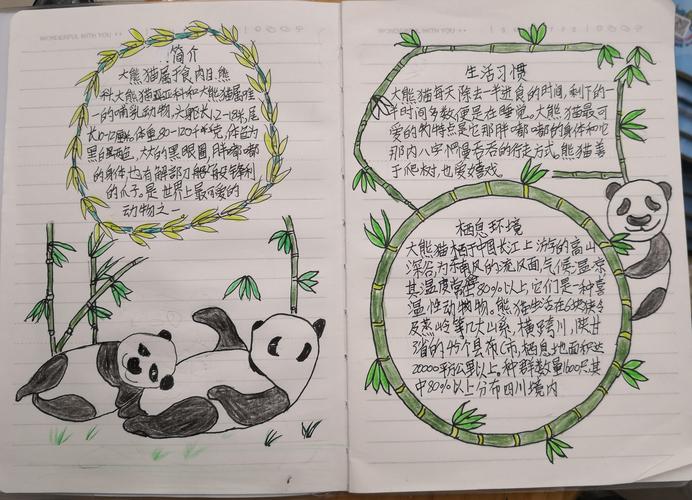 WONDERFUL WITH YOU
简介
大熊猫属于食肉目.熊
科大熊猫亚科和大熊猫属唯
一的哺乳动物,头躯长1.2-1.8米,尾
长10-12厘米.体重80-120千克,体色为
黑白两色,大大的黑眼圈,胖嘟嘟
的身体也有解剖刀般锋利
的爪子。是世界上最可爱的
动物之一
生活习惯
大熊猫每天除去一半进食的时间,剩下的一
半时间多数便是在睡觉。大熊猫最可
爱的特点是它那胖嘟嘟的身体和它
那内八字慢吞吞的行走方式。熊猫善
于爬树,也爱嬉戏。
栖息环境
大熊猫栖于中国长江上游的高山
深谷,为东南风的迎风面,气候温凉
其湿度常在80%以上,它们是一种喜
湿性动物。熊猫生活在
几大山系,横跨川,陕甘
省的45个县
20000平方公里以上。种群数量1600只其
中80%以上分布四川境内